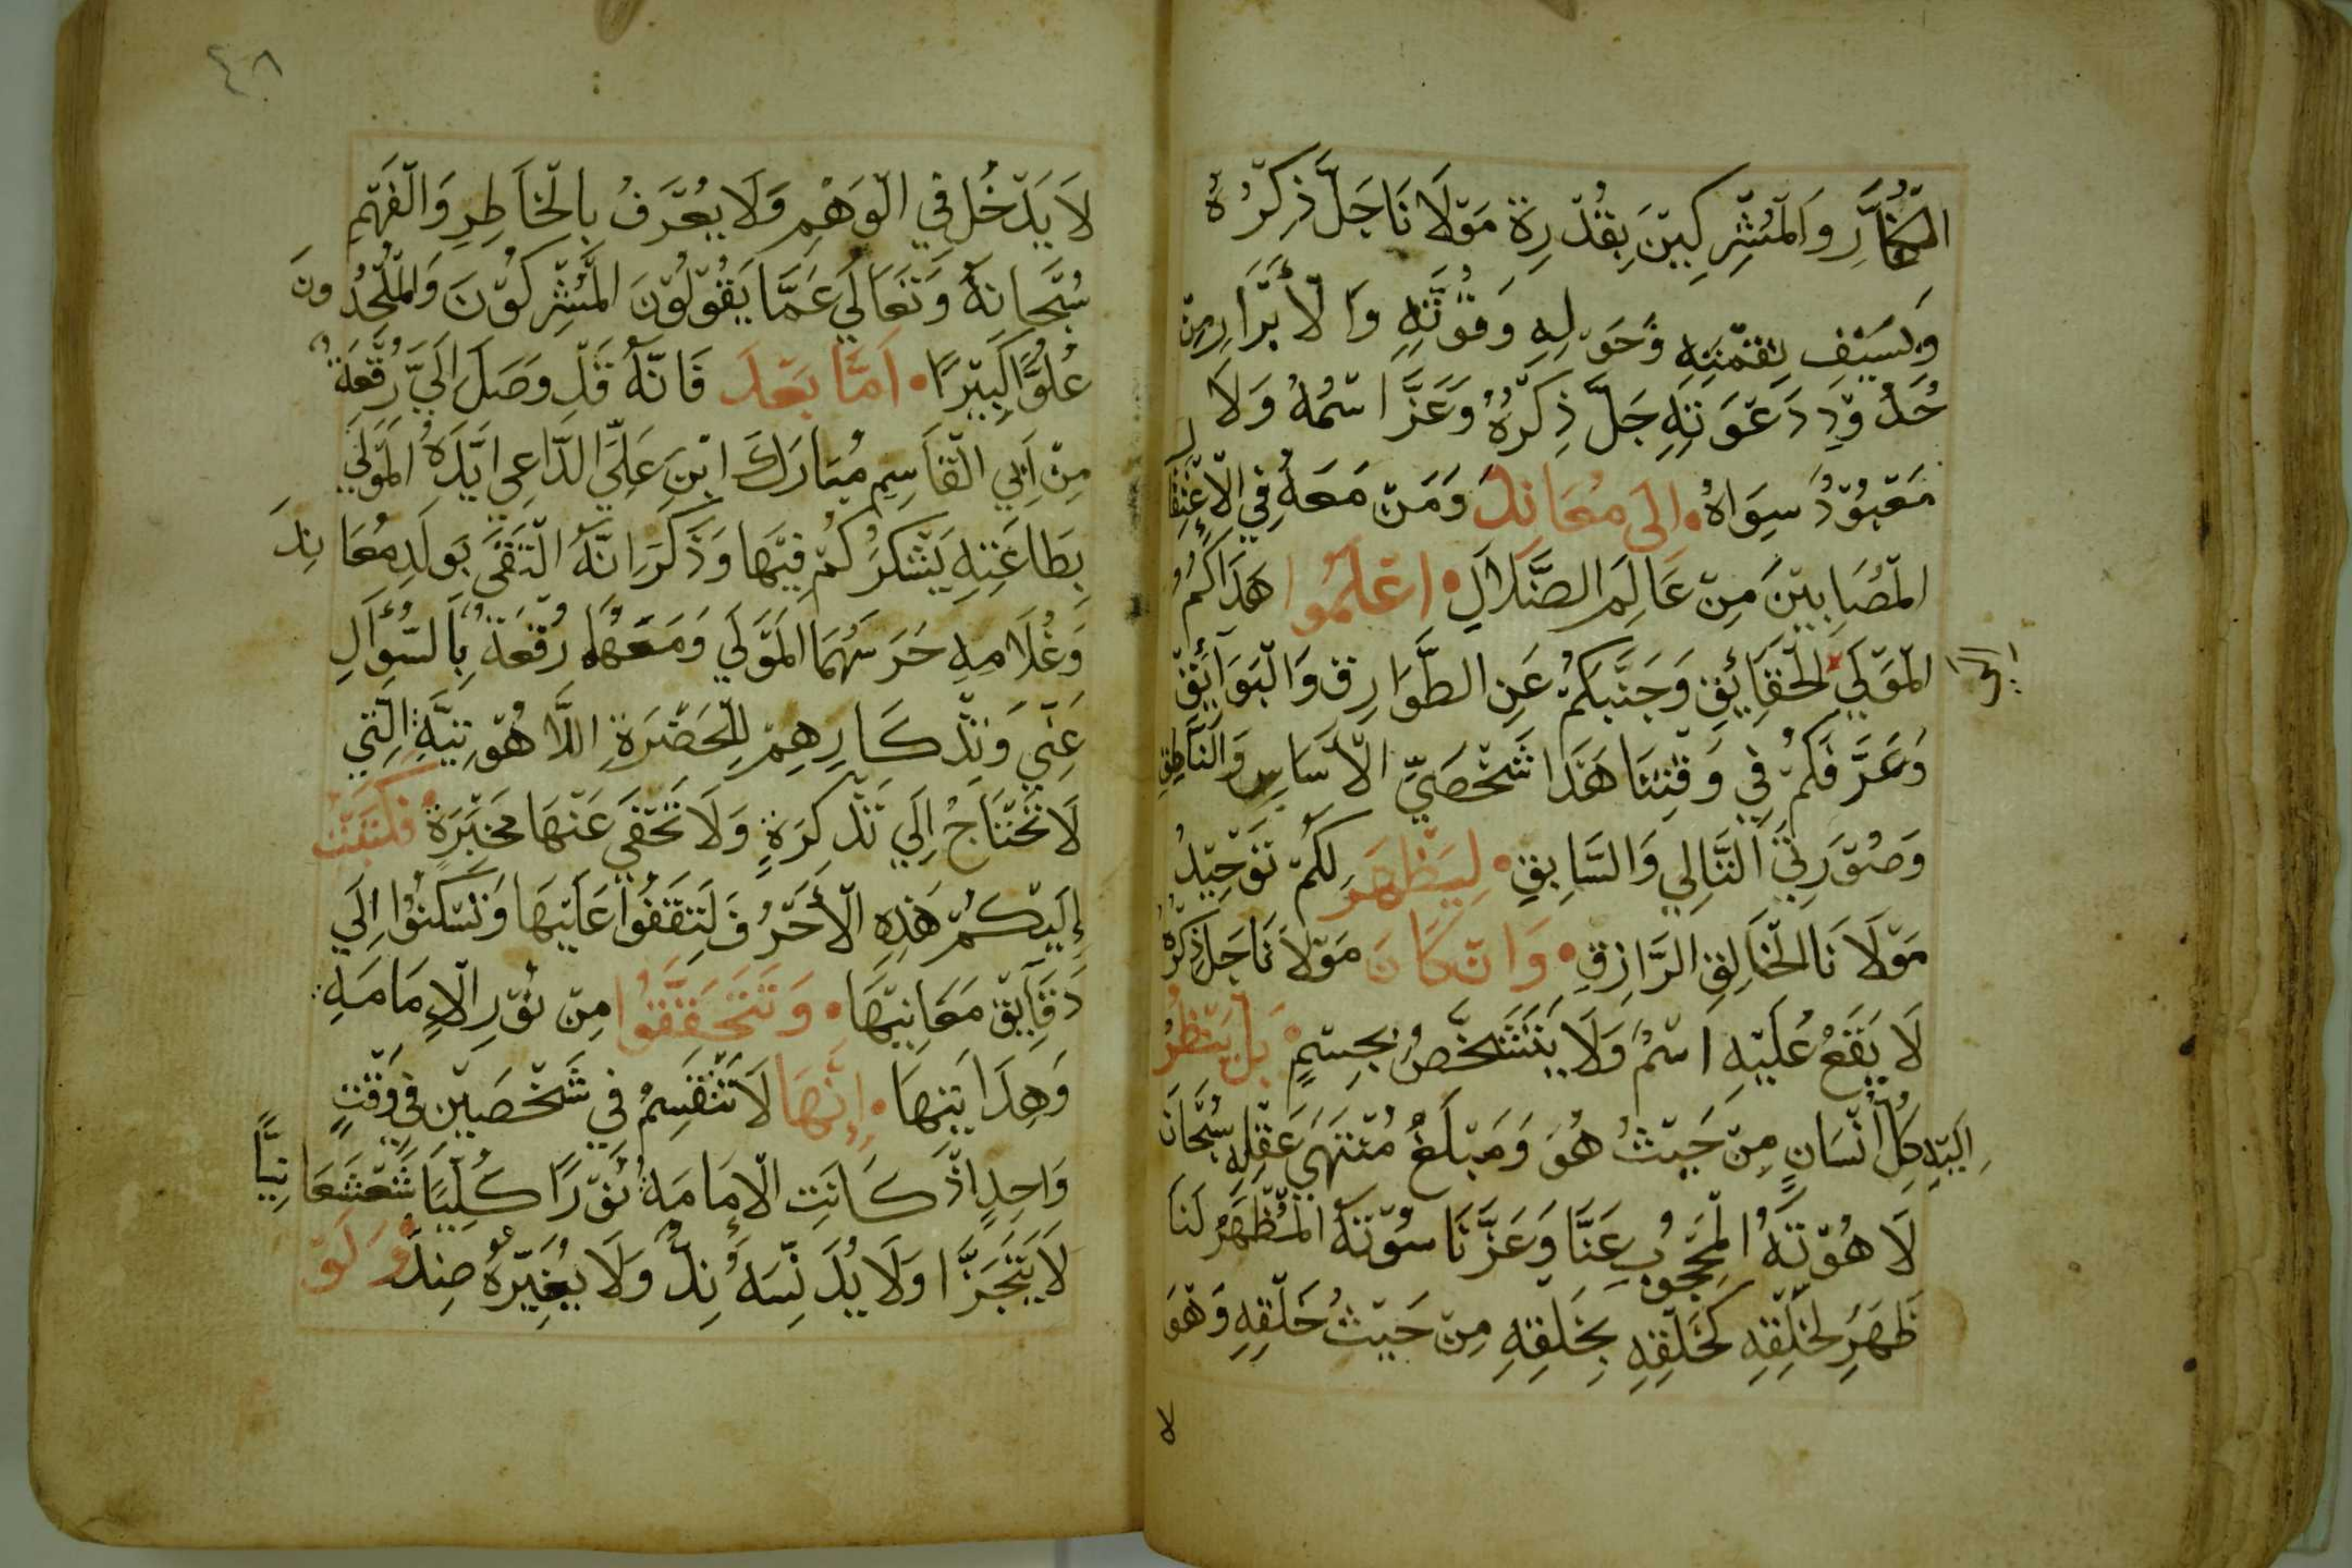 الكُفَّارِ وَالمُشْرِكِيْنَ بِقُدْرِة مَوْلَانَا جَلَّ ذِكْرُهُ
وَبسَيْفِ نِقمْتِهِ وَحَوْلِهِ وَقُوَّتِهِ وَالْأَبْرَارِ مِنْ
حُدُوْدِ دَعْوَتِهِ جَلَّ ذِكْرُهُ وَعَزَّ اسْمُهُ وَلَا
مَعْبُوْدُ سِوَاهُ • الى مُعَانِد وَمَنْ مَعَهُ فِي الْإعْتِقَا
المْصَابِيْنَ مِنْ عَالِمَ الضَّلَالِ • اعْلَمُوا هَدَاكُمُ
المْوَلَي لَلحْقَايِقِ وَجَنَّبَكُمْ عَنِ الطَّوَارِق وَالْبَوَايْقْ
إلى
وَعَرَّفَكُمْ فِي وَقْتِنَا هَذَا شَخْصَيِّ الْأَسَاسِ وَالنَّاطِقِ
وَصُوْرَتِيَ التَّالِي وَالسَّابِقِ • لِيَظْهَرَ لَكُمْ تَوْحِيْدُ
مَوْلَانَا الخْاَلِقِ الرَّازِقِ • وَانْ كَانَ مَوْلَانَا جَلَ ذِكْرُهُ
لَا يَقَعُ عَلَيْهِ اسْمُ وَلَا يَتَشَخَّصُ بجِسْمٍ • بَل يَنْظُرُ
اِلَيْهِ كِلُ أْنْسَانٍ مِنْ حَيْثُ هُوَ وَمَبْلَغُ مُنْتَهَى عَقْلِهِ سُبْحَانَ
لَا هُوْتَهُ المْحَجُوبِ عَنَّا وَعَزَّ نَاسُوْتَهُ المْظْهَرُ لَنَا
ظَهَرَ لخَلْقِهِ كَخَلْقِهِ بِخَلقِهِ مِنْ حَيْثُ خَلْقِهِ وَهْوَ
لا
٤٨
لَا يَدْخُل فِي الْوَهْمِ وَلَا يُعْرَفُ بِالْخَاطِرِ وَالْفَهْمِ
سُبْحَانَهُ وَتَعَالَي عَمَّا يَقُوْلُوْنَ المْشْرِكُوْنَ وَالْمُلْحِدُونَ
عُلُوًّا كَبِيْرًا • اَمَّا بَعْدَ فَانَّهُ قَدْ وَصَلَ الَيَّ رُقْعَةُ
مِنْ اَبِي الْقَاسِمِ مُبَارَكَ ابْنِ عَلِيِّ الدَّاعِي ايَّدَهُ المْوَلَي
بِطَاعَتِهِ يَشْكُرَكُمْ فِيْهَا وَذَكَرَ انَّهُ الْتَقَى بَولَدِ مُعَانِدَ
وَغُلَامِهِ حَرَسَهُمَا المْوَلَي وَمَعَهُا رُقْعَةُ بِالسُّؤَالِ
عَنِّي وَتِذْكَارِهِمْ لِلحَضْرَةِ اللَّاهُوْتِيَّةِ الَّتِي
لَا تَحْتَاجُ إِلَي تَذْكِرَةٍ وَلَا تَخْفَي عَنْهَا مخْبَرَةٍ • فَكَتَبْتُ
إِلَيْكُمْ هَذِهِ الْأَحْرُفَ لِتَقَفُوا عَلَيْهَا وَتَسْكُنُوا اِلَي
دَقَايَقْ مَعَانِيْهَا • وَتَتَحَقَّقُوا مِنْ نُوْرِ الْإمَامَةِ
وَهِدَايَتِهَا • إِنْهَا لَا تَنْقَسِمُ فِي شَخْصَيْنِ فِي وَقْتٍ
وَاحِدٍ اذْ كَانَتِ الْإمَامَةُ نُوْرًا كُلِيًا شَعْشَعَانِيًّا
لَا يَتَجَزَّا وَلَا يُدَنِّسَهُ نِدُّ وَلَا يُغَيِّرْهُ ضِدُّ • وَلَوْ